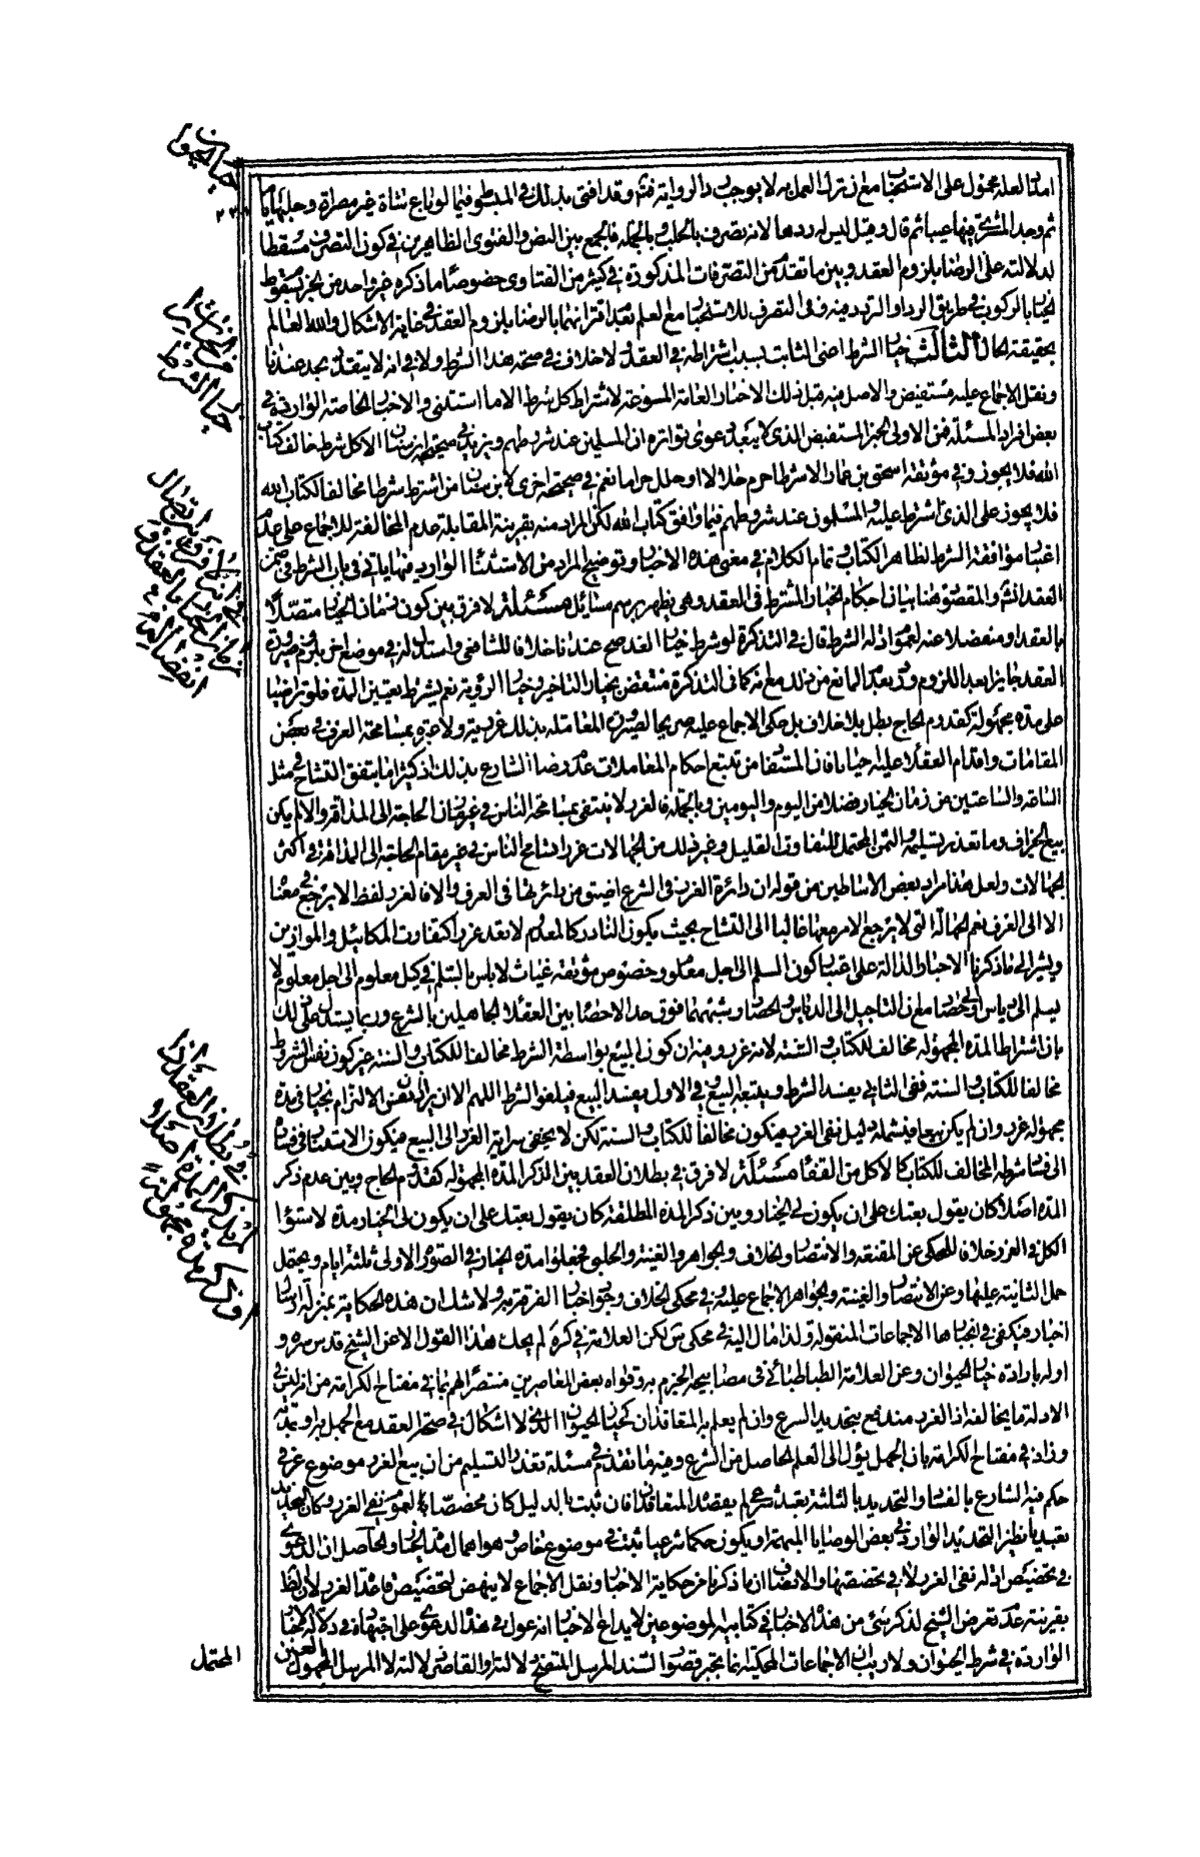 خيار الحيوان
٢٢٠
امكنا لعله محمول على الاستحباب مع ان ترك العمل به لا يوجب رد الرواية فتأمل وقد افتى بذلك في المبسوط فيما لو باع شاة غير مصراة وحلبها اياما
ثم وجد المشتري فيها عيبا ثم قال وقيل ليس له ردها لانه تصرف بالحلب وبالجملة فالجمع بين النص والفتوى الظاهرين في كون التصرف مسقطا
لدلالته على الرضا بلزوم العقد وبين ما تقدم من التصرفات المذكورة في كثير من الفتاوى خصوصا ما ذكره غير واحد من الجزم بسقوط
الخيار بالركوب في طريق الرد او التردد فيه وفي التصرف للاستخبار مع العلم بعدم اقترانهما بالرضا بلزوم العقد في غاية الاشكال والله العالم
بحقيقة الحال الثالث خيار الشرط اعني الثابت بسبب اشتراطه في العقد لا خلاف في صحة هذا الشرط ولا في انه لا يتقدر بحد عندنا
ونقل الاجماع عليه مستفيض والاصل فيه قبل ذلك الاخبار العامة المسوغة لاشتراط كل شرط الا ما استثني والاخبار الخاصة الواردة في
بعض افراد المسئلة فمن الاولى الخبر المستفيض الذي لا يبعد دعوى تواتره ان المسلمين عند شروطهم وزيد في صحيحة ابن سنان الا كل شرط خالف كتاب
الله فلا يجوز وفي موثقة اسحق بن عمار الا شرطا حرم حلالا او حلل حراما نعم في صحيحة اخرى لابن سنان من اشترط شرطا مخالفا لكتاب الله
فلا يجوز على الذي اشترط عليه والمسلمون عند شروطهم فيما وافق كتاب الله لكن المراد منه بقرينة المقابلة عدم المخالفة للاجماع على عدم
اعتبار موافقة الشرط لظاهر الكتاب وتمام الكلام في معنى هذه الاخبار وتوضيح المراد من الاستثناء الوارد فيها ياتي في باب الشرط في ضمن
العقد انش والمقصود هنا بيان احكام الخيار المشترط في العقد وهي يظهر برسم مسائل مسئلة لا فرق بين كون زمان الخيار متصلا
بالعقد او منفصلا عنه لعموم ادلة الشرط قال في التذكرة لو شرط خيار الغد صح عندنا خلافا للشافعي واستدل له في موضع اخر بلزوم صيرورة
العقد جايزا بعد اللزوم ورد بعدم المانع من ذلك مع انه كما في التذكرة منتقض بخيار التاخير وخيار الرؤية نعم يشترط تعيين المدة فلو تراضيا
على مدة مجهولة كقدوم الحاج بطل بلا خلاف بل حكي الاجماع عليه صريحا لصيرورة المعاملة بذلك غررية ولا عبرة بمسامحة العرف في بعض
المقامات واقدام العقلاء عليه احيانا فان المستفاد من تتبع احكام المعاملات عدم رضا الشارع بذلك اذ كثيرا ما يتفق التشاح في مثل
الساعة والساعتين من زمان الخيار فضلا من اليوم واليومين وبالجملة فالغرر لا ينتفي بمسامحة الناس في غير زمان الحاجة الى المداقة والا لم يكن
بيع الجزاف وما تعذر تسليمه والثمن المحتمل للتفاوت القليل وغير ذلك من الجهالات غررا لتسامح الناس في غير مقام الحاجة الى المداقة في اكثر
الجهالات ولعل هذا مراد بعض الاساطين من قوله ان دائرة الغرر في الشرع اضيق من دائرتها في العرف والا فالغرر لفظ لا يرجع في معناه
الا الى العرف نعم الجهالة التي لا يرجع الامر معها غالبا الى التشاح بحيث يكون النادر كالمعدوم لا تعد غررا كتفاوت المكائيل والموازين
ويشير الى ما ذكرنا الاخبار الدالة على اعتبار كون السلم الى اجل معلوم وخصوص موثقة غياث لا باس بالسلم في كيل معلوم الى اجل معلوم لا
يسلم الى دياس او الى حصاد مع ان التاجيل الى الدياس والحصاد وشبههما فوق حد الاحصاء بين العقلاء الجاهلين بالشرع وربما يستدل على ذلك
بان اشتراط المدة المجهولة مخالف للكتاب والسنة لانه غرر وفيه ان كون البيع بواسطة الشرط مخالفا للكتاب والسنة غير كون نفس الشرط
مخالفا للكتاب والسنة ففي الثاني يفسد الشرط ويتبعه البيع وفي الاول يفسد البيع فيلغو الشرط اللهم الا ان يراد ان نفس الالتزام بخيار في مدة
مجهولة غرر وان لم يكن بيعا فيشمله دليل نفي الغرر فيكون مخالفا للكتاب والسنة لكن لا يخفى سراية الغرر الى البيع فيكون الاستناد في فساده
الى فساد شرطه المخالف للكتاب كالاكل من القفا مسئلة لا فرق في بطلان العقد بين ذكر المدة المجهولة كقدوم الحاج وبين عدم ذكر
المدة اصلا كان يقول بعتك على ان يكون لي الخيار وبين ذكر المدة المطلقة كان يقول بعتك على ان يكون لي الخيار مدة لاستواء
الكل في الغرر خلافا للمحكي عن المقنعة والانتصار والخلاف والجواهر والغنية والحلبي فجعلوا مدة الخيار في الصورة الاولى ثلثة ايام ويحتمل
حمل الثانية عليها وعن الانتصار والغنية والجواهر الاجماع عليه وفي محكي الخلاف وجود اخبار الفرقة به ولا شك ان هذه الحكاية بمنزلة ارسال
اخبار فيكفي في انجبارها الاجماعات المنقولة ولذا مال اليه في محكي س لكن العلامة في كرة لم يحك هذا القول الا عن الشيخ قدس سره و
اوله بارادة خيار الحيوان وعن العلامة الطباطبائي في مصابيحه الجزم به وقواه بعض المعاصرين منتصرا لهم بما في مفتاح الكرامة من انه ليس في
الادلة ما يخالفه اذ الغرر مندفع بتحديد الشرع وان لم يعلم به المتعاقدان كخيار الحيوان الذي لا اشكال في صحة العقد مع الجهل به او بمدته
وزاد في مفتاح الكرامة بان الجهل يؤل الى العلم الحاصل من الشرع وفيه ما تقدم في مسئلة تعذر التسليم من ان بيع الغرر موضوع عرفي
حكم فيه الشارع بالفساد والتحديد بالثلثة تعبد شرعي لم يقصده المتعاقدان فان ثبت بالدليل كان مخصصا لعموم نفي الغرر وكان التحديد
تعبديا نظير التحديد الوارد في بعض الوصايا المبهمة او يكون حكما شرعيا ثبت في موضوع خاص وهو اهمال مدة الخيار والحاصل ان الدعوى
في تخصيص ادلة نفي الغرر لا في تخصصها والانصاف ان ما ذكرنا من حكاية الاخبار ونقل الاجماع لا ينهض لتخصيص قاعدة الغرر لان الظ
بقرينة عدم تعرض الشيخ لذكر شئ من هذه الاخبار في كتابيه الموضوعين لايداع الاخبار انه عول في هذه الدعوى على اجتهاده في دلالة الاخبار
الواردة في شرط الحيوان ولا ريب ان الاجماعات المحكية انما تجبر قصور السند المرسل المتضح دلالته او القاصر دلالته لا المرسل المجهول العين
المحتمل
في ان من افراد الخيار خيار الشرط
في انه لا فرق بين اتصال زمان الخيار بالعقد و انفصاله عنه
في بطلان العقد اذا لم يذكر المدة اصلا او ذكر مدة مجهولة